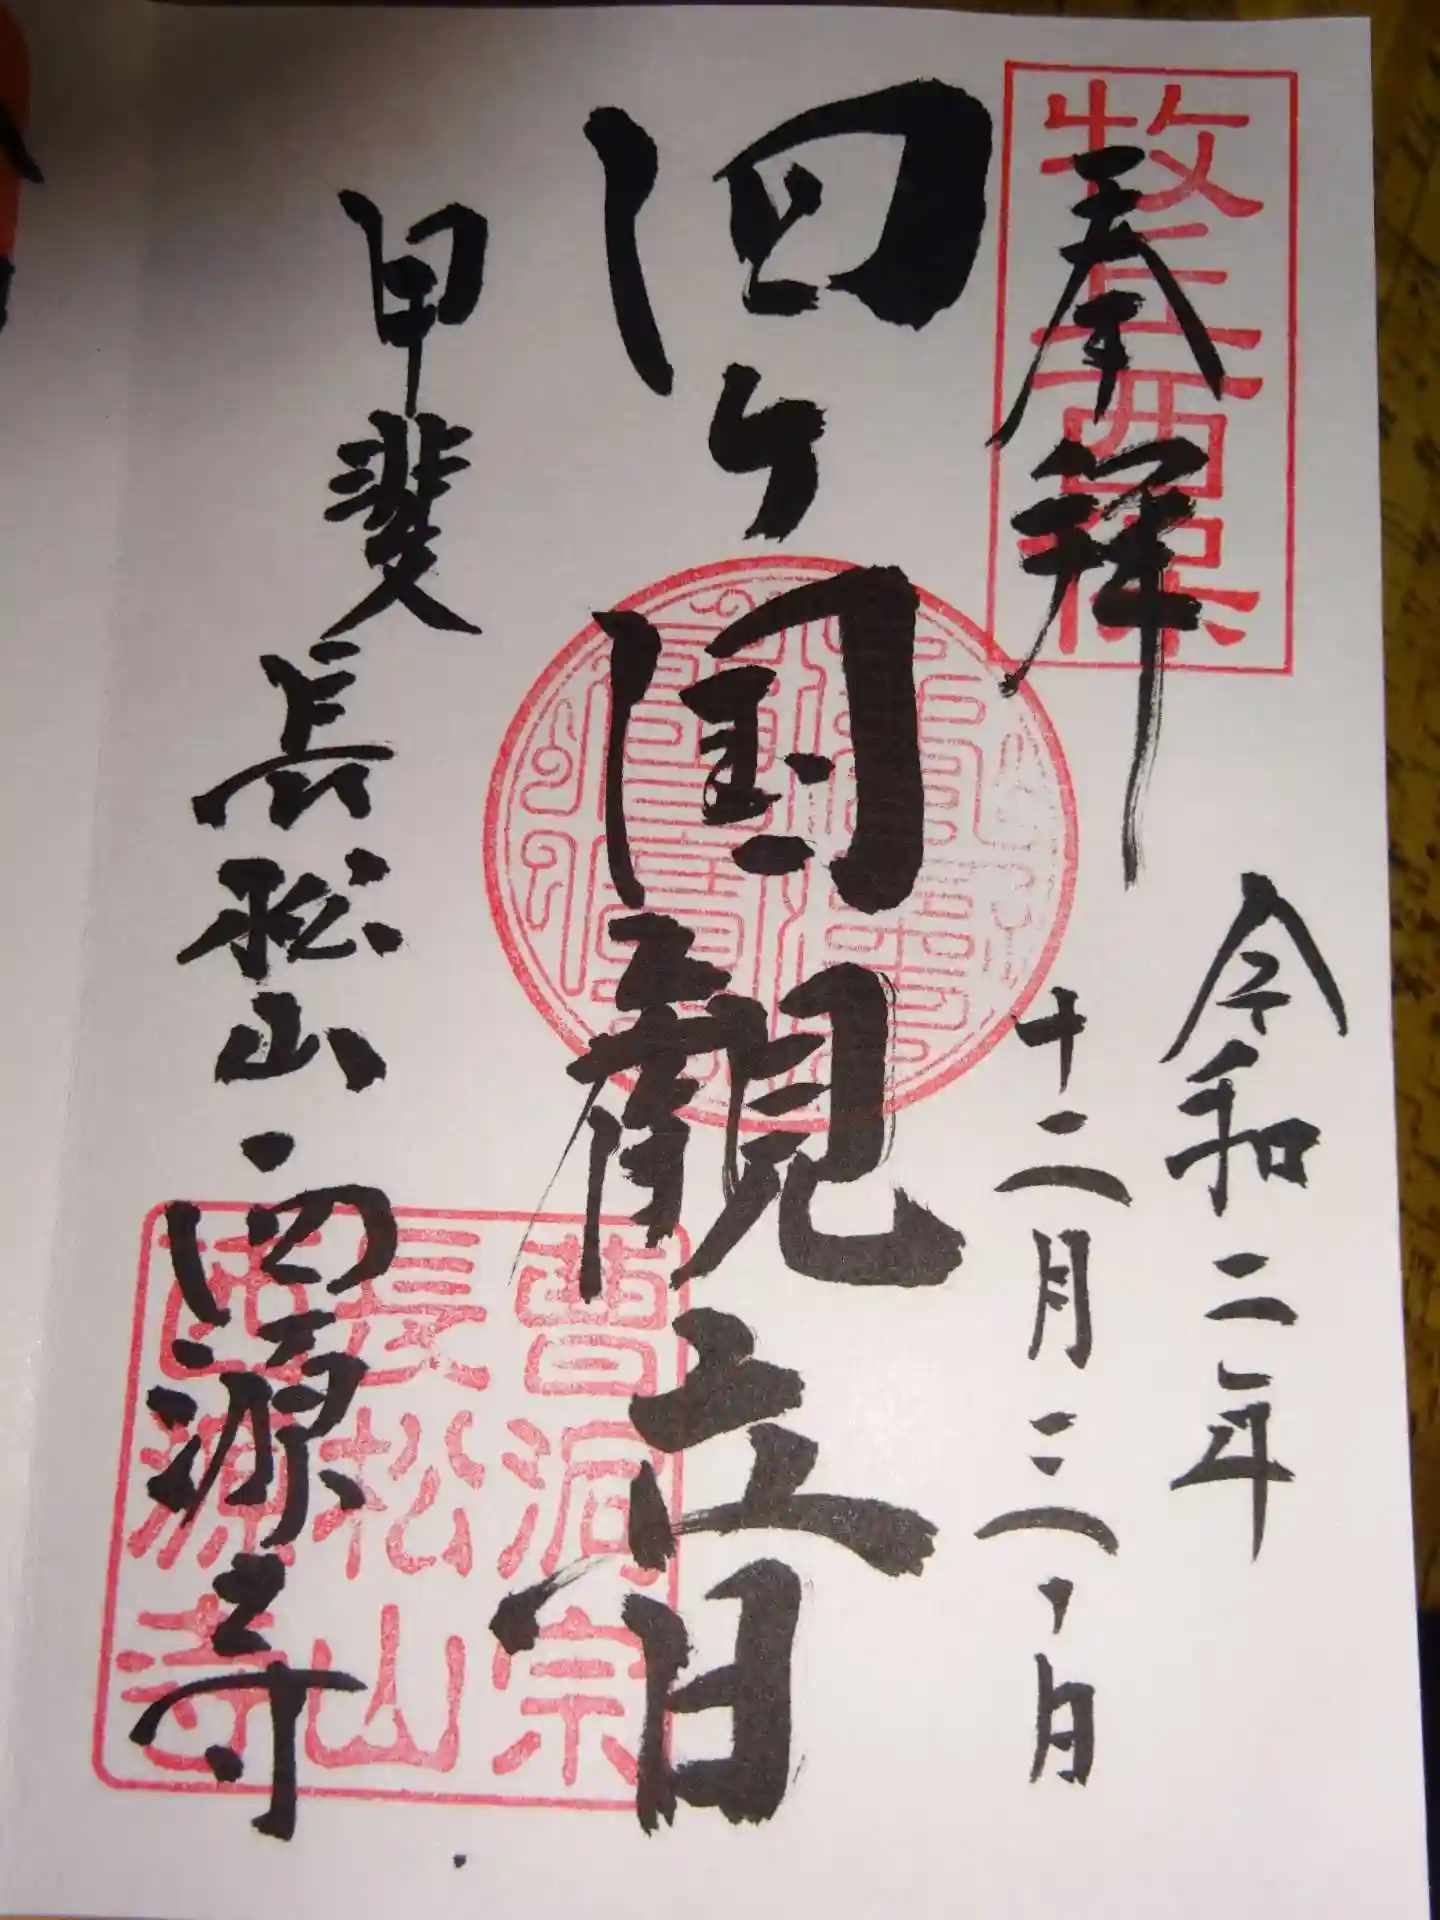 奉拝
令和二年
十二月三十一日
四ヶ國觀音
甲斐
長松山・西源寺
牧丘西保
曹洞宗
長松山
西源寺